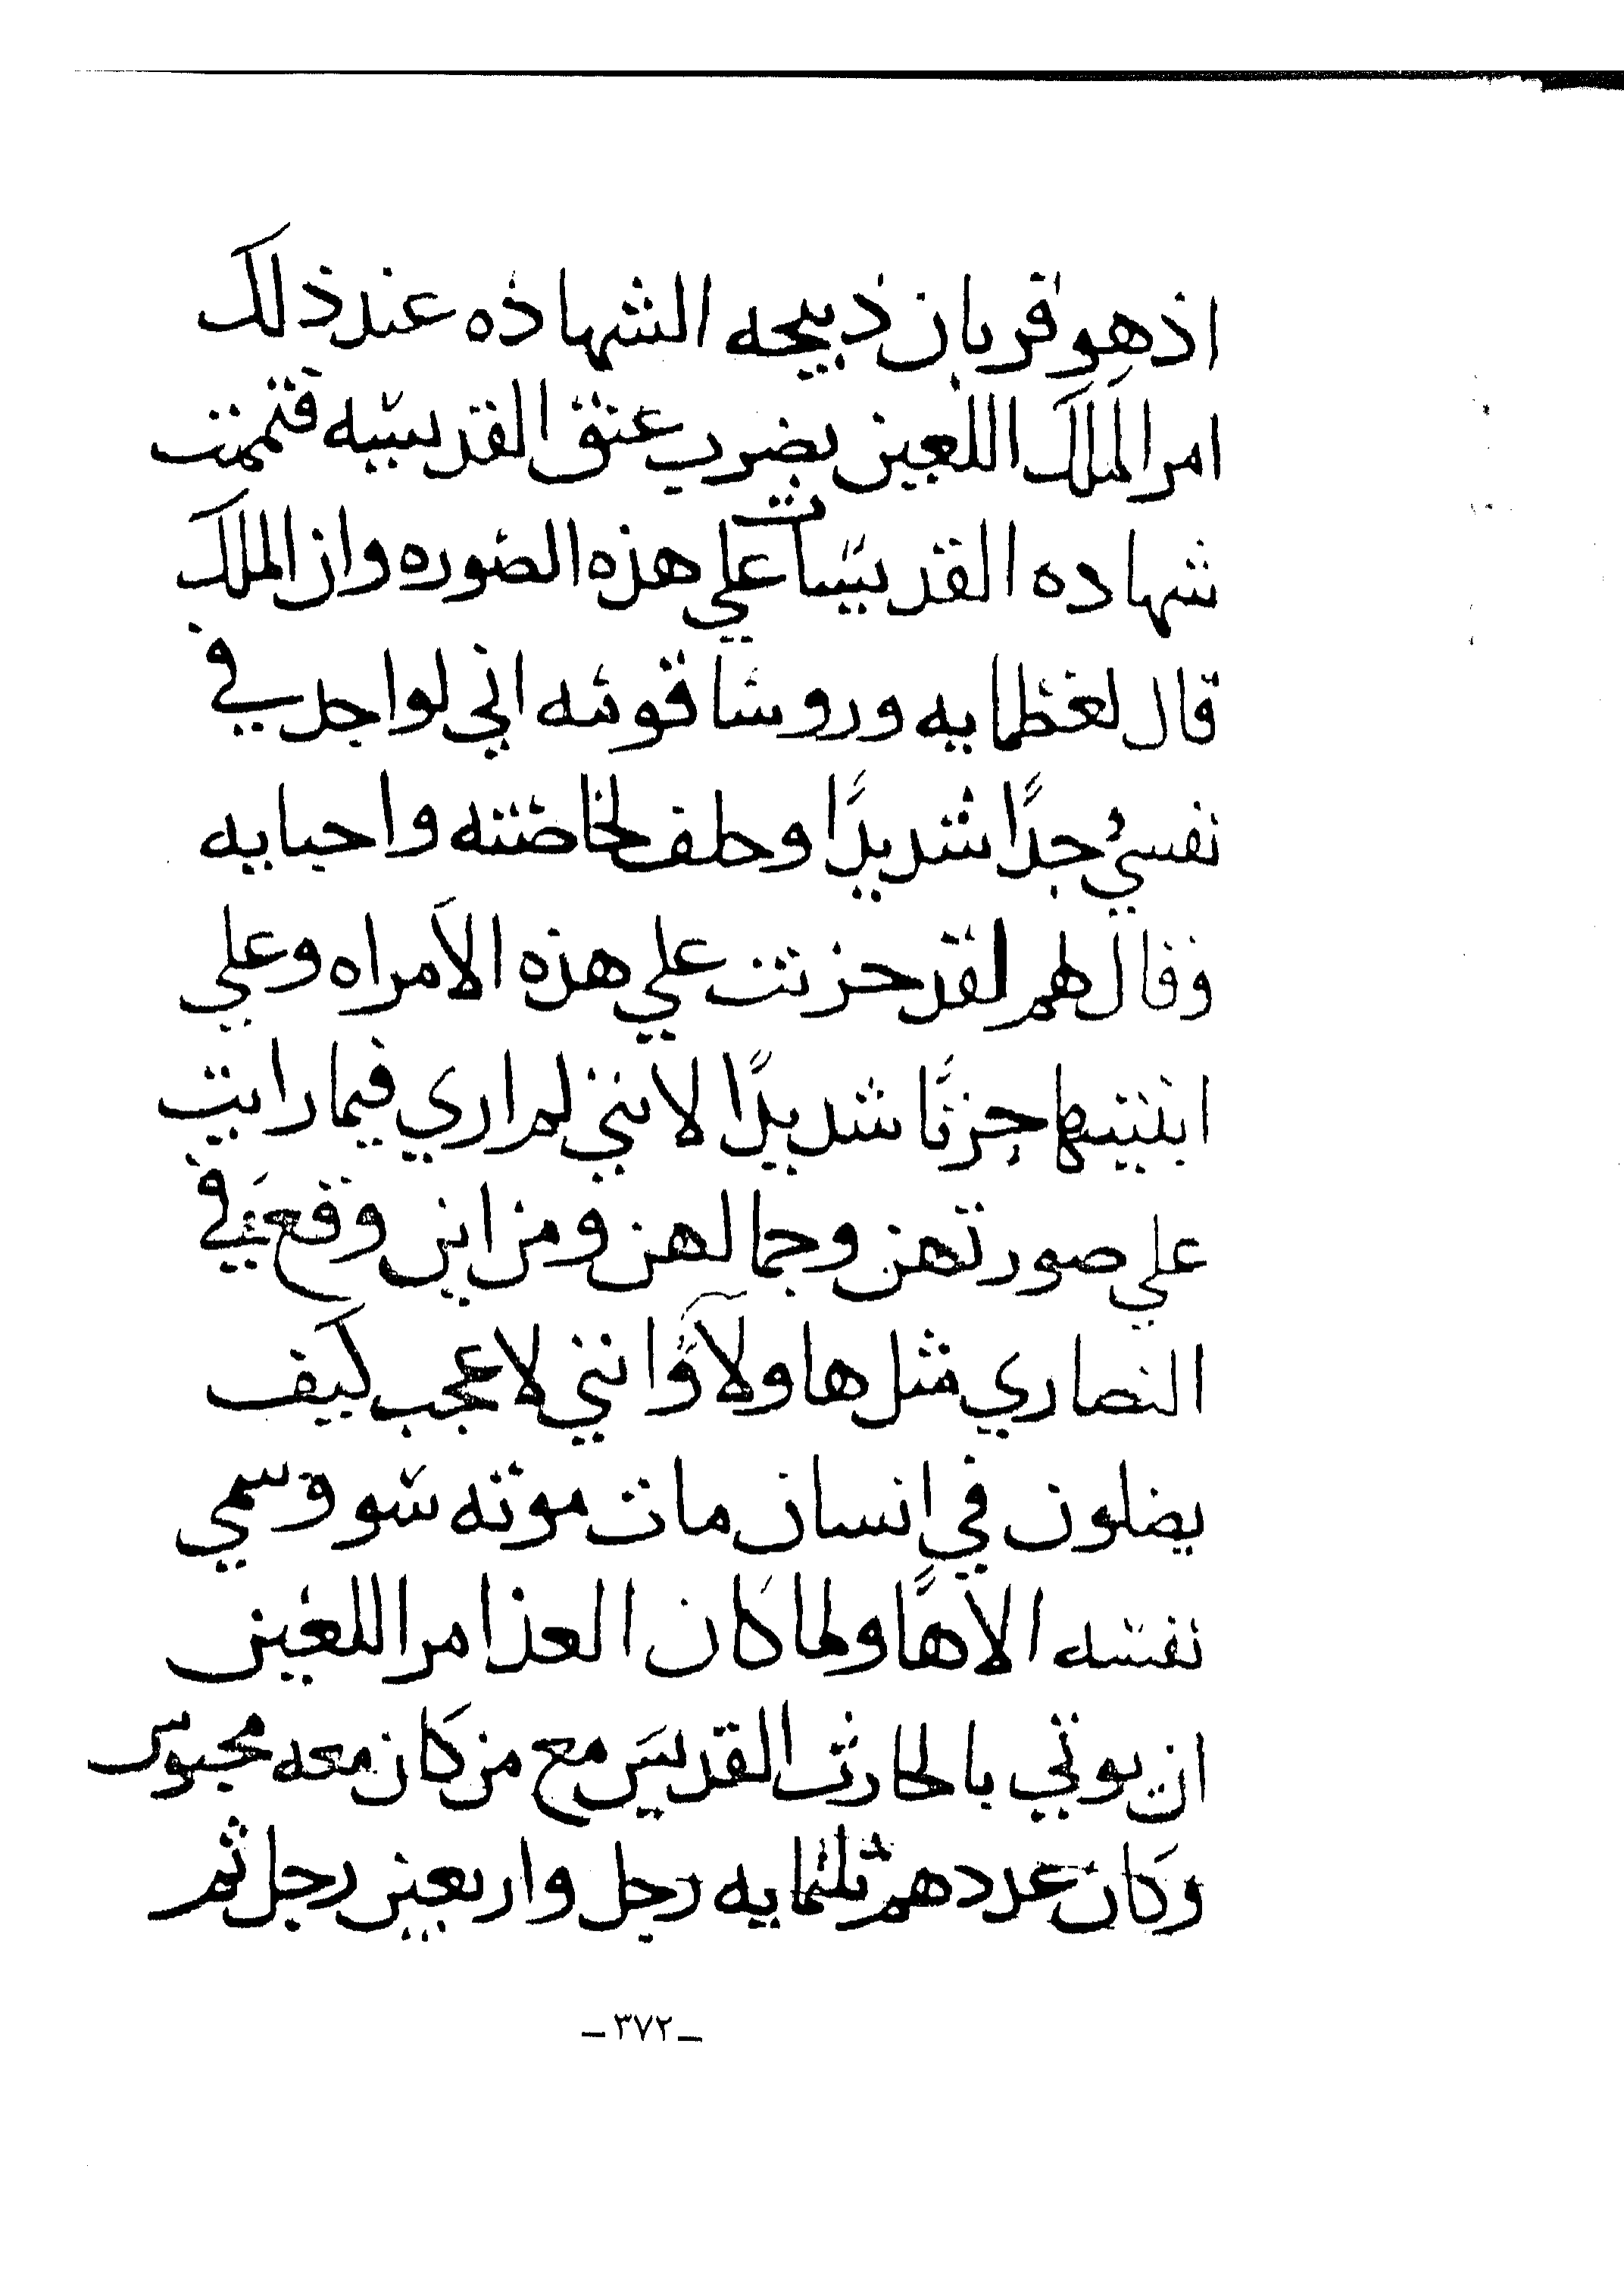 اذ هو قربان ذبيحه الشهاده عند ذلك
امر الملك اللعين بضرب عنق القديسيه فتممت
شهاده القديسات علي هذه الصوره وان الملك
قال لعظمايه وروسا قومه اني لواجد في
نفسي جدًا شديدًا وحلف لخاصته واحبايه
وقال لهم لقد حزنت علي هذه الامراه وعلي
ابنتيها حزنًا شديدًا لانني لم اري فيما رايت
علي صورتهن وجمالهن ومن اين وقع في
النصاري مثل هاولآ وانني لاعجب كيف
يضلون في انسان مات موته سو وسمي
نفسه الاهًا ولما كان الغد امر اللعين
ان يوتي بالحارث القديس مع من كان معه محبوس
وكان عددهم ثلثمايه رجل واربعين رجل ثم
ـ ٣٧٢ ـ